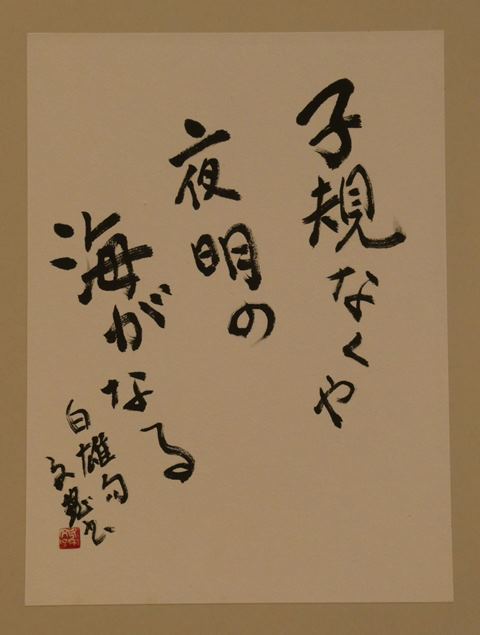 子規なくや
夜明の
海がなる
白雄句